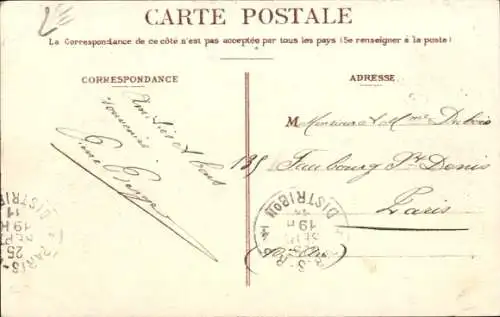 2E
CARTE POSTALE
La Correspondance de ce côté n'est pas acceptée par tous les pays (Se renseigner à la poste)
CORRESPONDANCE
Amitiés et bons
souvenirs
ADRESSE
M Monsieur et Mme Dubois
135 Faubourg St Denis
Paris
PARIS
DISTRIBON
19H
25
SEPT
11
DISTRIBON
19H